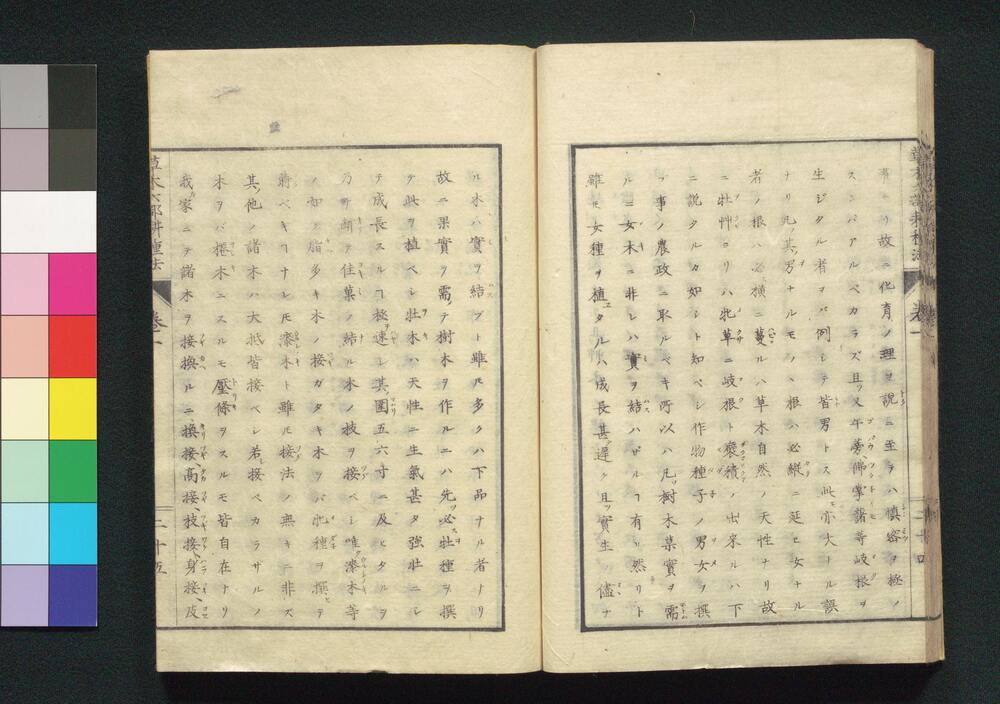 事ナリ故ニ化育ノ理ヲ説ニ至テハ慎密ヲ極メ
スンバアルベカラズ且又牛蒡佛掌藷等岐根ヲ
生ジタル者ヲバ例シテ皆男トス此モ亦大ナル誤
ナリ凡ソ其男ナルモノハ根ハ必縦ニ延ヒ女ナル
者ノ根ハ必横ニ蔓ルハ草木自然ノ天性ナリ故
ニ牡艸ロハリハ牝草ニ岐根ト襞積ノ出来ルハ下
ニ説タルカ如シト知ベシ作物種子ノ男女ヲ撰
フ事ノ農政ニ取ルベキ所以ハ凡ソ樹木菓實ヲ需
ルニ女木ニ非レハ實ヲ結ハザルヿ有シ然リト
雖モ女種ヲ植タルハ成長甚遅ク且ツ實生ノ儘ナ
草木六部耕種法
巻一
二十四
ル木ハ實ヲ結ブト雖𪜈多クハ下品ナル者ナリ
故ニ果實ヲ需テ樹木ヲ作ルニハ先ツ必牡種ヲ撰
テ此ヲ植ベシ牡木ハ天性ニ生氣甚タ強壮ニシ
テ成長スルヿ極速シ其圍五六寸ニ及ヒタルヲ
乃チ頭テ佳菓ノ結ル木ノ枝ヲ接ベシ唯漆木等
ノ如ク脂多キ木ノ接ガタキ木ヲバ牝種ヲ撰テ
蒔ベキヿナレ𪜈漆木ト雖𪜈接法ノ無キニ非ス
其他ノ諸木ハ大抵皆接ベシ若接ベカラサルノ
木ヲバ捲木ニスルモ壓條ヲスルモ皆自在ナリ
我家ニテ諸木ヲ接換ルニ換接高接、枝接、身接、及
草木六部耕種法
巻一
二十五